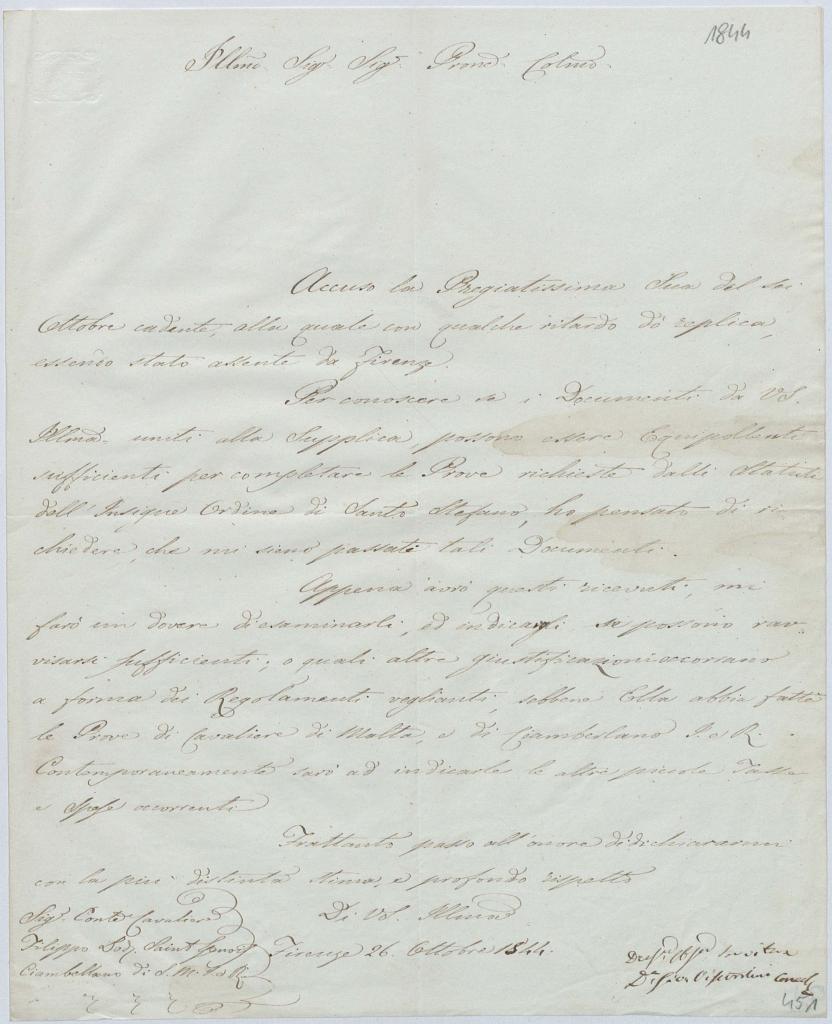 1844
Illmo. Sigr. Sigr. Prone. Colmo.
Accuso la Pregiatissima Sua del sei
Ottobre cadente, alla quale con qualche ritardo dò replica,
essendo stato assente da Firenze.
Per conoscere se i Documenti da VS.
Illma. uniti alla Supplica, possono essere Equipollenti
sufficienti per completare le Prove richieste dalli Statuti
dell'Insigne Ordine di Santo Stefano, ho pensato di ri-
chiedere, che mi siano passati tali Documenti.
Appena avrò questi ricevuti, mi
farò un dovere di esaminarli, ed indicargli se possono rav-
visarsi sufficienti; o quali altre giustificazioni occorrano
a forma dei Regolamenti veglianti, sebbene Ella abbia fatto
le Prove di Cavaliere di Malta, e di Ciamberlano I. e R.
Contemporaneamente sarò ad indicarle le altre piccole Tasse
e Spese occorrenti
Trattanto passo all'onore di dichiararmi
con la più distinta stima, e profondo rispetto
Di VS. Illma
Sigr. Conte Cavaliere
Filippo
Saint
Firenze 26. Ottobre 1844.
Ciambellano di S. M. I. e R.
451